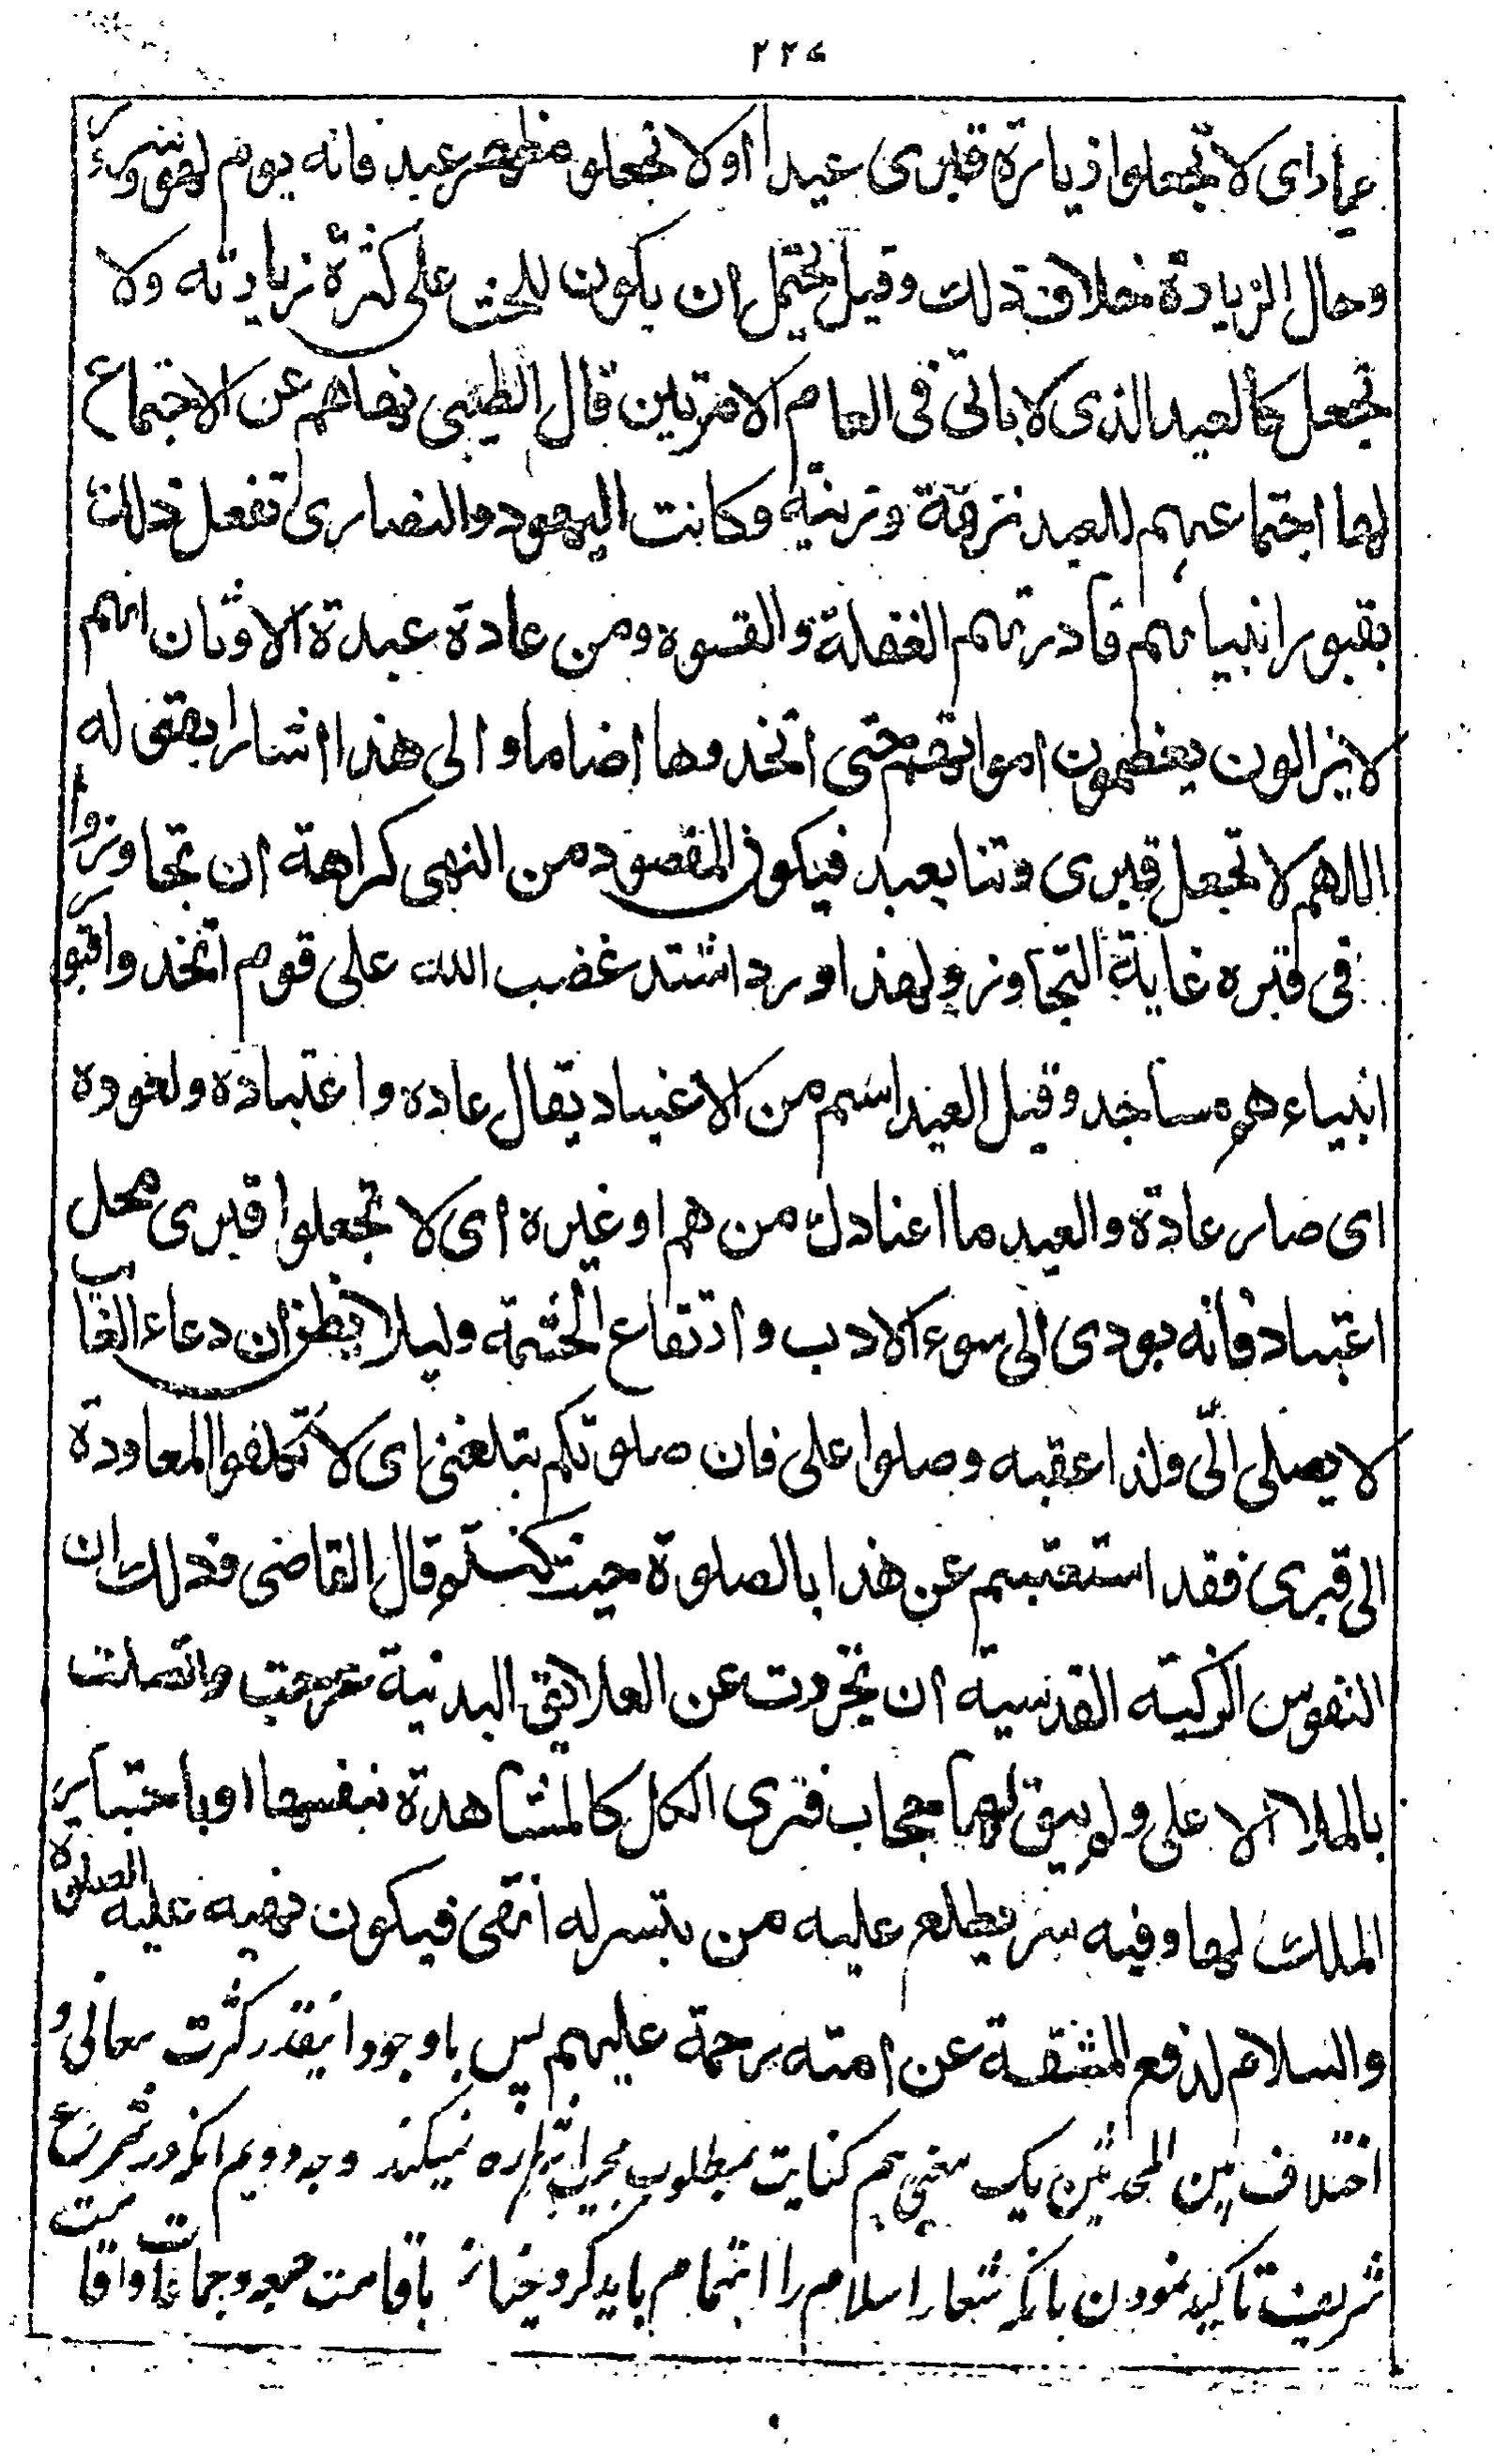 ۲۲۵
عيدا اى لا تجعلوا زيارة قبرى عيدا او لا تجعلو مظهر عيد فانه يوم لهو وسرور
وحال الزيادة خلاف ذلك وقيل يحتمل ان يكون للحث على كثرة زيادته ولا
تجعل كالعيد الذى لا ياتى فى العام الا مرتين قال الطيبى نهاهم عن الاجتماع
لها اجتماعهم للعيد نزهة وزينة وكانت اليهود والنصارى تفعل ذلك
بقبور انبيائهم فادرتهم الغفلة والقسوه ومن عادة عبدة الاوثان انهم
لا يزالون يعظمون امواتهم حتى اتخدوها اصناما والى هذا اشار بقوله
اللهم لا تجعل قبرى وثنا يعبد فيكون المقصود من النهى كراهة ان تجاوزوا
فى قبره غاية التجاوز ولهذا ورد اشتد غضب الله على قوم اتخدوا قبور
انبياءهم مساجد وقيل العيد اسم من الاعياد يقال عاده واعتباده ولعوده
اى صار عادة والعيد ما اعتادك من هم او غيره اى لا تجعلوا قبرى محل
اعتياد فانه يودى الى سوء الادب وارتفاع الحشمة وليلا يظن ان دعاء الغايب
لا يصلى الّى ولذا عقبه وصلوا على فان صلوتكم تبلغنى اى لا تكلفوا المعاودة
الى قبرى فقد استغنيتم عن هذا بالصلوة حيث كنتم قال القاضى وذلك ان
النفوس الزكية القدسية ان تجردت عن العلايق البدنية عرجت واتصلت
بالملا الاعلى ولم يبق لها حجاب فترى الكل كالمشاهدة بنفسها او باخبار
الملك لها وفيه سر يطلع عليه من يتسرله انتهى فيكون نهيه عليه الصلوة
والسلام لدفع المشقة عن امته رحمة عليهم پس باوجود اينقدر كثرت معانى و
اختلاف بين المحدثين يك معنى هم كفايت بمطلوب نميكند وجه دويم آنكه در شرع
شريف تاكيد نمودن بآنكه شعار اسلام را اهتمام بايد كرد چنانچه باقامت جمعه وجماعات واقامت